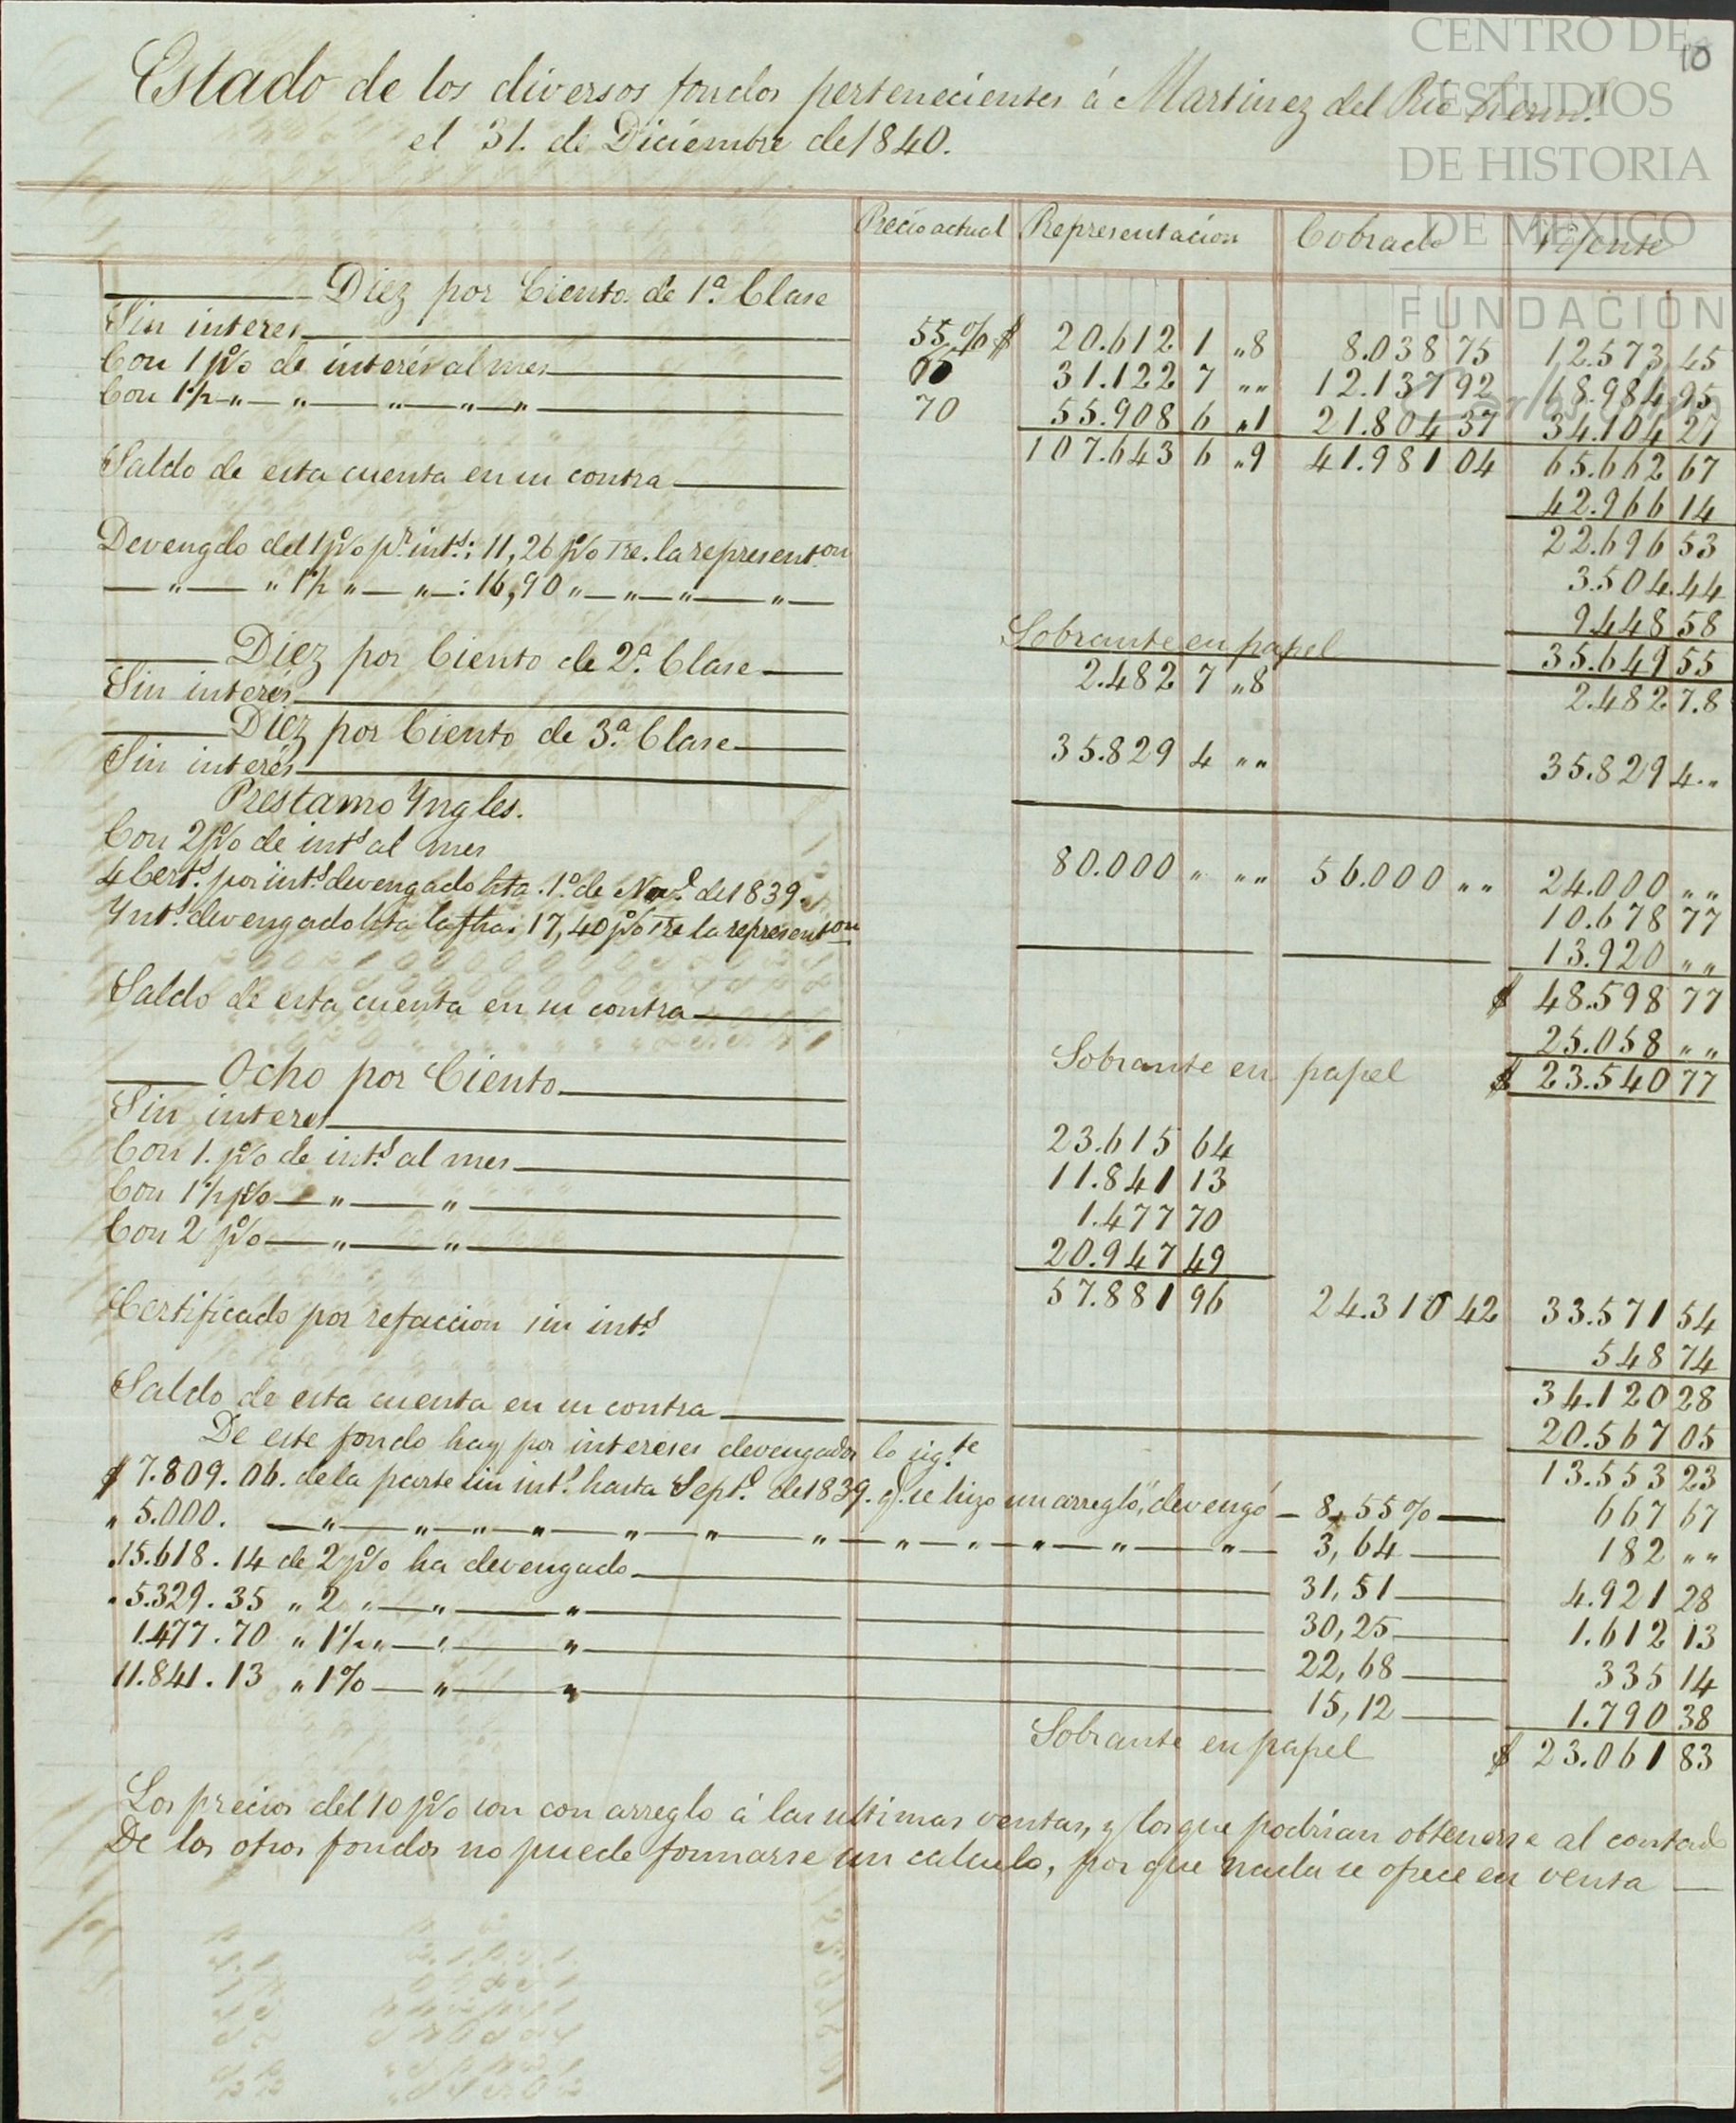 CENTRO DE
ESTUDIOS
DE HISTORIA
DE MEXICO
FUNDACIÓN
10
Estado de los diversos fondos pertenecientes á Martinez del Rio Herm.s
el 31. de Diciembre de 1840.
Precio actual Representacion Cobrado Vijente
Diez por Ciento de 1.a Clase
Sin interes 55 % $ 20.612 1 „8 8.038 75 12.573 45
Con 1 p% de interés al mes 31.122 7 „„ 12.137 92 18.984 95
Con 1½ „ „ „ „ „ 70 55.908 6 „1 21.804 37 34.104 27
107.643 6 „9 41.981 04 65.662 67
Saldo de esta cuenta en su contra 42.966 14
22.696 53
Devengdo del 1 p% pr. ints.: 11,26 p% sre. la represent.on 3.504.44
„ „ 1½ „ „: 16,90 „ „ „ „ 9448 58
Sobrante en papel 35.649 55
Diez por Ciento de 2.a Clase
Sin interés 2.482 7 „8 2.482 7.8
Diez por Ciento de 3.a Clase
Sin interés 35.829 4 „„ 35.829 4 „
Prestamo Yngles.
Con 2 p% de ints al mes 80.000 „ „„ 56.000 „„ 24.000 „„
4 Certs. por ints. devengado hta. 1.o de Nov.e de 1839. 10.678 77
Ynts. devengado hta la fha: 17,40 p% sre la represent.on 13.920 „„
$ 48.598 77
Saldo de esta cuenta en su contra 25.058 „„
Sobrante en papel $ 23.540 77
Ocho por Ciento
Sin interes 23.615 64
Con 1. p% de ints. al mes 11.841 13
Con 1½ p% „ „ 1.477 70
Con 2 p% „ „ 20.947 49
57.881 96 24.310 42 33.571 54
Certificado por refaccion sin ints. 548 74
34.120 28
Saldo de esta cuenta en su contra 20.567 05
13.553 23
De este fondo hay por intereses devengados lo sig.te
$ 7.809. 06. de la parte sin int.s hasta Sept.e de 1839. q.e se hizo un arreglo, devengó 8,55 % 667 67
„ 5.000. „ „ „ „ „ „ „ „ „ „ „ „ „ 3,64 182 „„
„15.618. 14 de 2 p% ha devengado 31,51 4.921 28
„ 5.329. 35 „ 2 „ „ „ 30,25 1.612 13
1.477. 70 „ 1½ „ „ „ 22,68 335 14
11.841. 13 „ 1% „ „ 15,12 1.790 38
Sobrante en papel $ 23.061 83
Los precios del 10 p% son con arreglo á las ultimas ventas, y los que podrian obtenerse al contado
De los otros fondos no puede formarse un calculo, por que nada se ofrece en venta